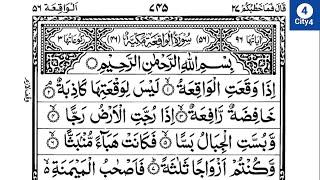 4
City4
قَالَ فَمَا خَطْبُكُمْ ٢٧ ٧٣٥ اَلْوَاقِعَة ٥٦
اٰيَاتُهَا ٩٦ (٥٦) سُوْرَةُ الْوَاقِعَةِ مَكِّيَّةٌ (٤٦) رُكُوْعَاتُهَا ٣
بِسْمِ اللّٰهِ الرَّحْمٰنِ الرَّحِيْمِ
اِذَا وَقَعَتِ الْوَاقِعَةُ ۙ لَيْسَ لِوَقْعَتِهَا كَاذِبَةٌ ۘ
خَافِضَةٌ رَّافِعَةٌ ۙ اِذَا رُجَّتِ الْاَرْضُ رَجًّا ۙ
وَّبُسَّتِ الْجِبَالُ بَسًّا ۙ فَكَانَتْ هَبَآءً مُّنْۢبَثًّا ۙ
وَّكُنْتُمْ اَزْوَاجًا ثَلٰثَةً ؕ فَاَصْحٰبُ الْمَيْمَنَةِ